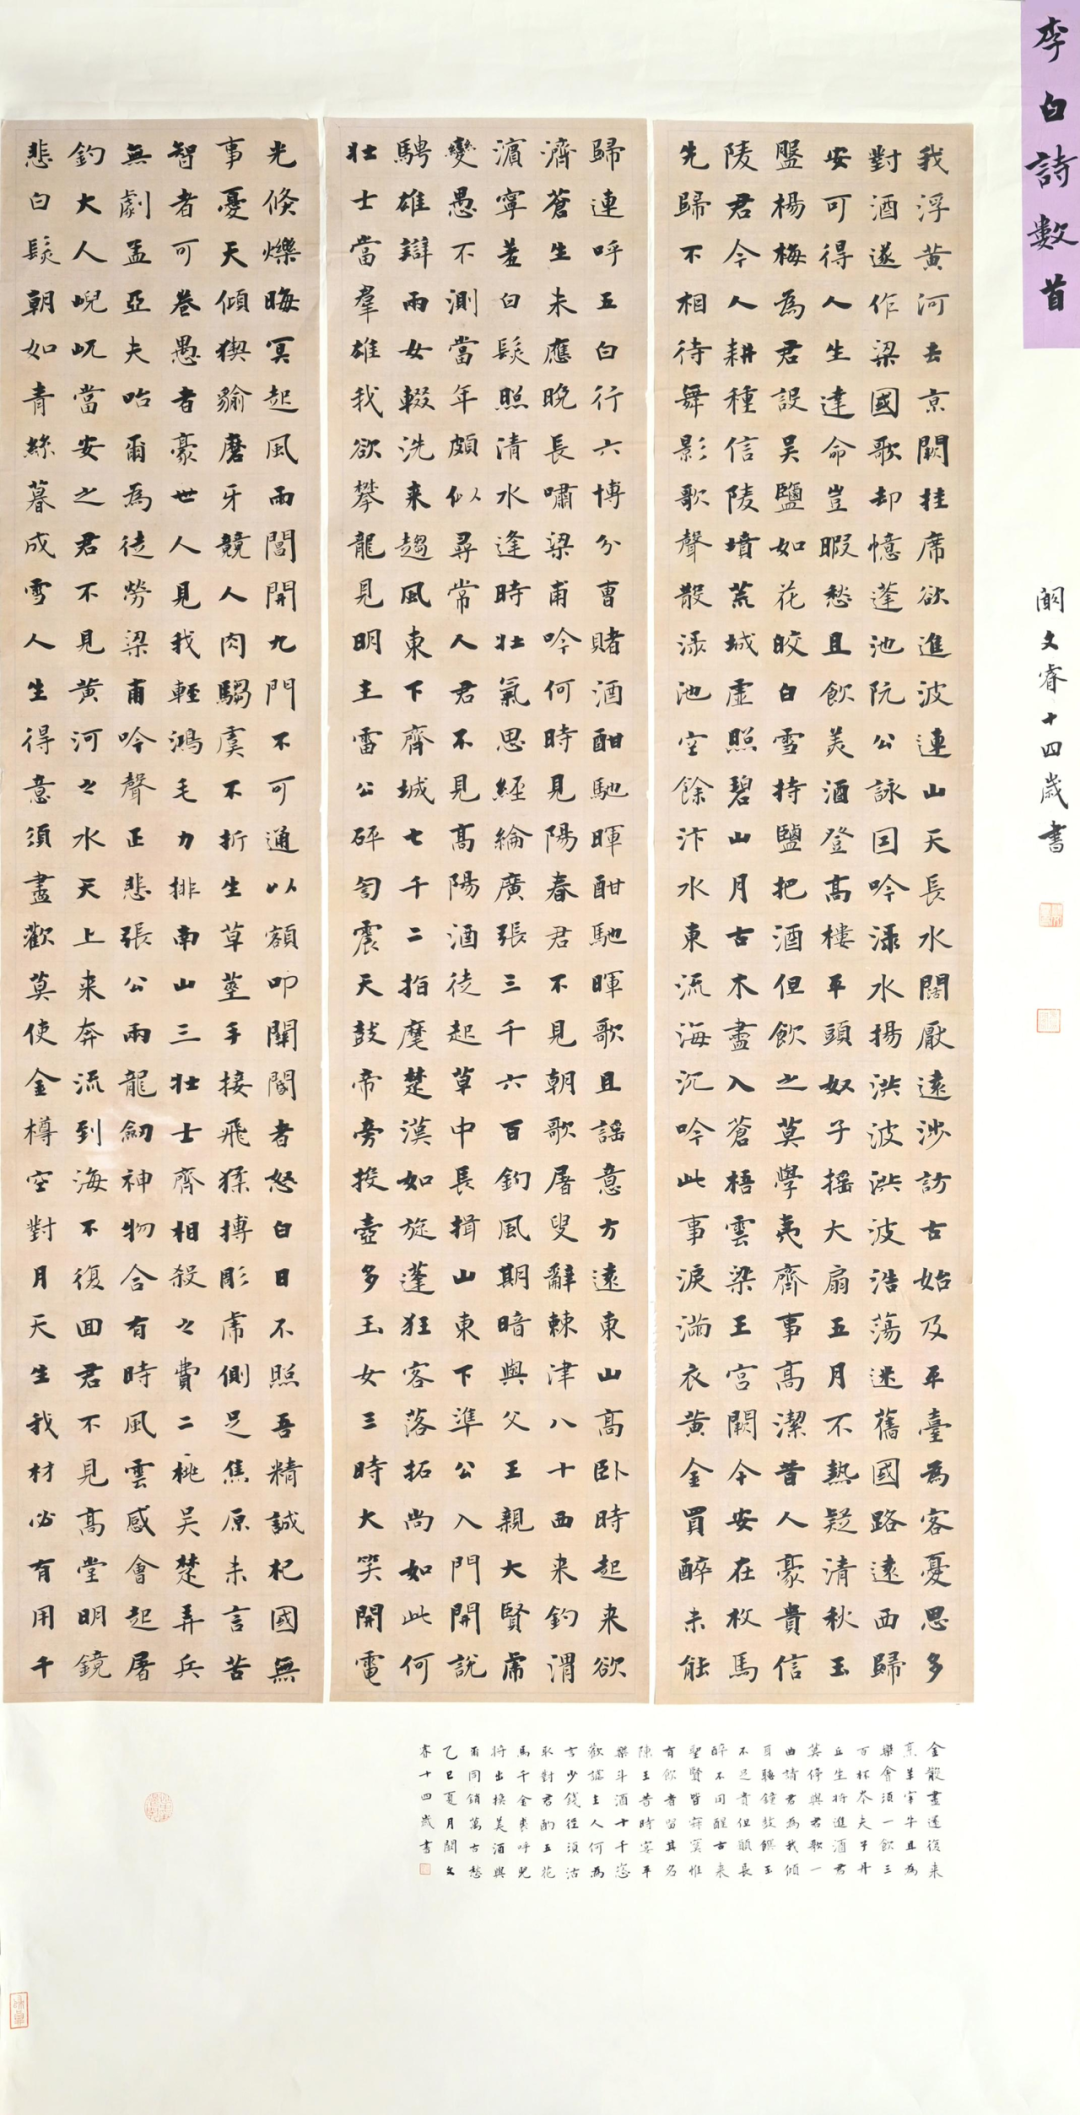 李白詩數首
闞文睿十四歲書
我浮黃河去京闕挂席欲進波連山天長水闊厭遠涉訪古始及平臺為客憂思多
對酒遂作梁國歌却憶蓬池阮公詠因吟淥水揚洪波洪波浩蕩迷舊國路遠西歸
安可得人生達命豈暇愁且飲美酒登高樓平頭奴子搖大扇五月不熱疑清秋玉
盤楊梅為君設吳鹽如花皎白雪持鹽把酒但飲之莫學夷齊事高潔昔人豪貴信
陵君今人耕種信陵墳荒城虛照碧山月古木盡入蒼梧雲梁王宮闕今安在枚馬
先歸不相待舞影歌聲散淥池空餘汴水東流海沉吟此事淚滿衣黃金買醉未能
歸連呼五白行六博分曹賭酒酣馳暉酣馳暉歌且謠意方遠東山高臥時起来欲
濟蒼生未應晚長嘯梁甫吟何時見陽春君不見朝歌屠叟辭棘津八十西来釣渭
濱寧羞白髮照清水逢時壯氣思經綸廣張三千六百釣風期暗與父王親大賢席
變愚不測當年頗似尋常人君不見高陽酒徒起草中長揖山東下準公入門開說
騁雄辯兩女輟洗来趨風東下齊城七千二指麾楚漢如旋蓬狂客落拓尚如此何
壯士當羣雄我欲攀龍見明主雷公砰訇震天鼓帝旁投壺多玉女三時大笑開電
光倏爍晦冥起風雨閶開九門不可通以額叩關閽者怒白日不照吾精誠杞國無
事憂天傾猰貐磨牙競人肉騶虞不折生草莖手接飛猱搏彫虎側足焦原未言苦
智者可卷愚者豪世人見我輕鴻毛力排南山三壯士齊相殺之費二桃吳楚弄兵
無劇孟亞夫咍爾為徒勞梁甫吟聲正悲張公兩龍劍神物合有時風雲感會起屠
釣大人峴屼當安之君不見黃河之水天上来奔流到海不復回君不見高堂明鏡
悲白髮朝如青絲暮成雪人生得意須盡歡莫使金樽空對月天生我材必有用千
金散盡還復来
烹羊宰牛且為
樂會須一飲三
百杯岑夫子丹
丘生將進酒君
莫停與君歌一
曲請君為我傾
耳聽鐘鼓饌玉
不足貴但願長
醉不用醒古来
聖賢皆寂寞惟
有飲者留其名
陳王昔時宴平
樂斗酒十千恣
歡謔主人何為
言少錢徑須沽
取對君酌五花
馬千金裘呼兒
將出換美酒與
爾同銷萬古愁
乙巳夏月闞文
睿十四歲書